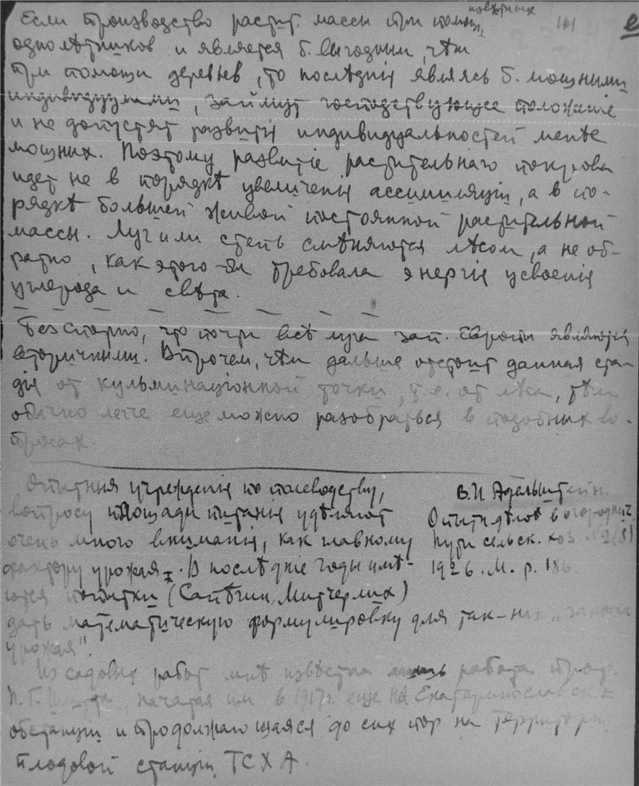 Если производство растит. массы при помощи
однолѣтников и является б. выгодным, чѣм
при помощи деревьев, то послѣднія являясь б. мощными
индивидуумами, займут господствующее положеніе
и не допустят развитія индивидуальностей менѣе
мощных. Поэтому развитіе растительнаго покрова
идет не в порядкѣ увеличенія ассимиляціи, а в по-
рядкѣ большей живой постоянной растительной
массы. Луг или степь смѣняются лѣсом, а не об-
ратно, как этого бы требовала энергія усвоенія
углерода и свѣта.
Безспорно, что почти всѣ луга зап. Европы являются
вторичными. Впрочем, чѣм дальше отстоит данная ста-
дія от кульминаціонной точки, т.е. от лѣса, тѣм
обычно легче еще можно разобраться в подобных во-
просах.
Опытныя учрежденія по полеводству,
вопросу площади питанія удѣляют
очень много вниманія, как главному
фактору урожая. В послѣдніе годы имѣ-
ются попытки (Сапѣгин, Митчерлих)
дать математическую формулировку для так-наз. „закона
урожая".
В.И. Эдельштейн
Опытн. дѣло в огородн.
Пути сельск. хоз. №2(8)
1926. М. p. 186.
Из садовых работ мнѣ извѣстна лишь работа проф.
П.Г. Шитта, начатая им в 1917 г. еще на Екатеринославск.
обстанціи и продолжающаяся до сих пор на территоріи
плодовой станціи ТСХА.